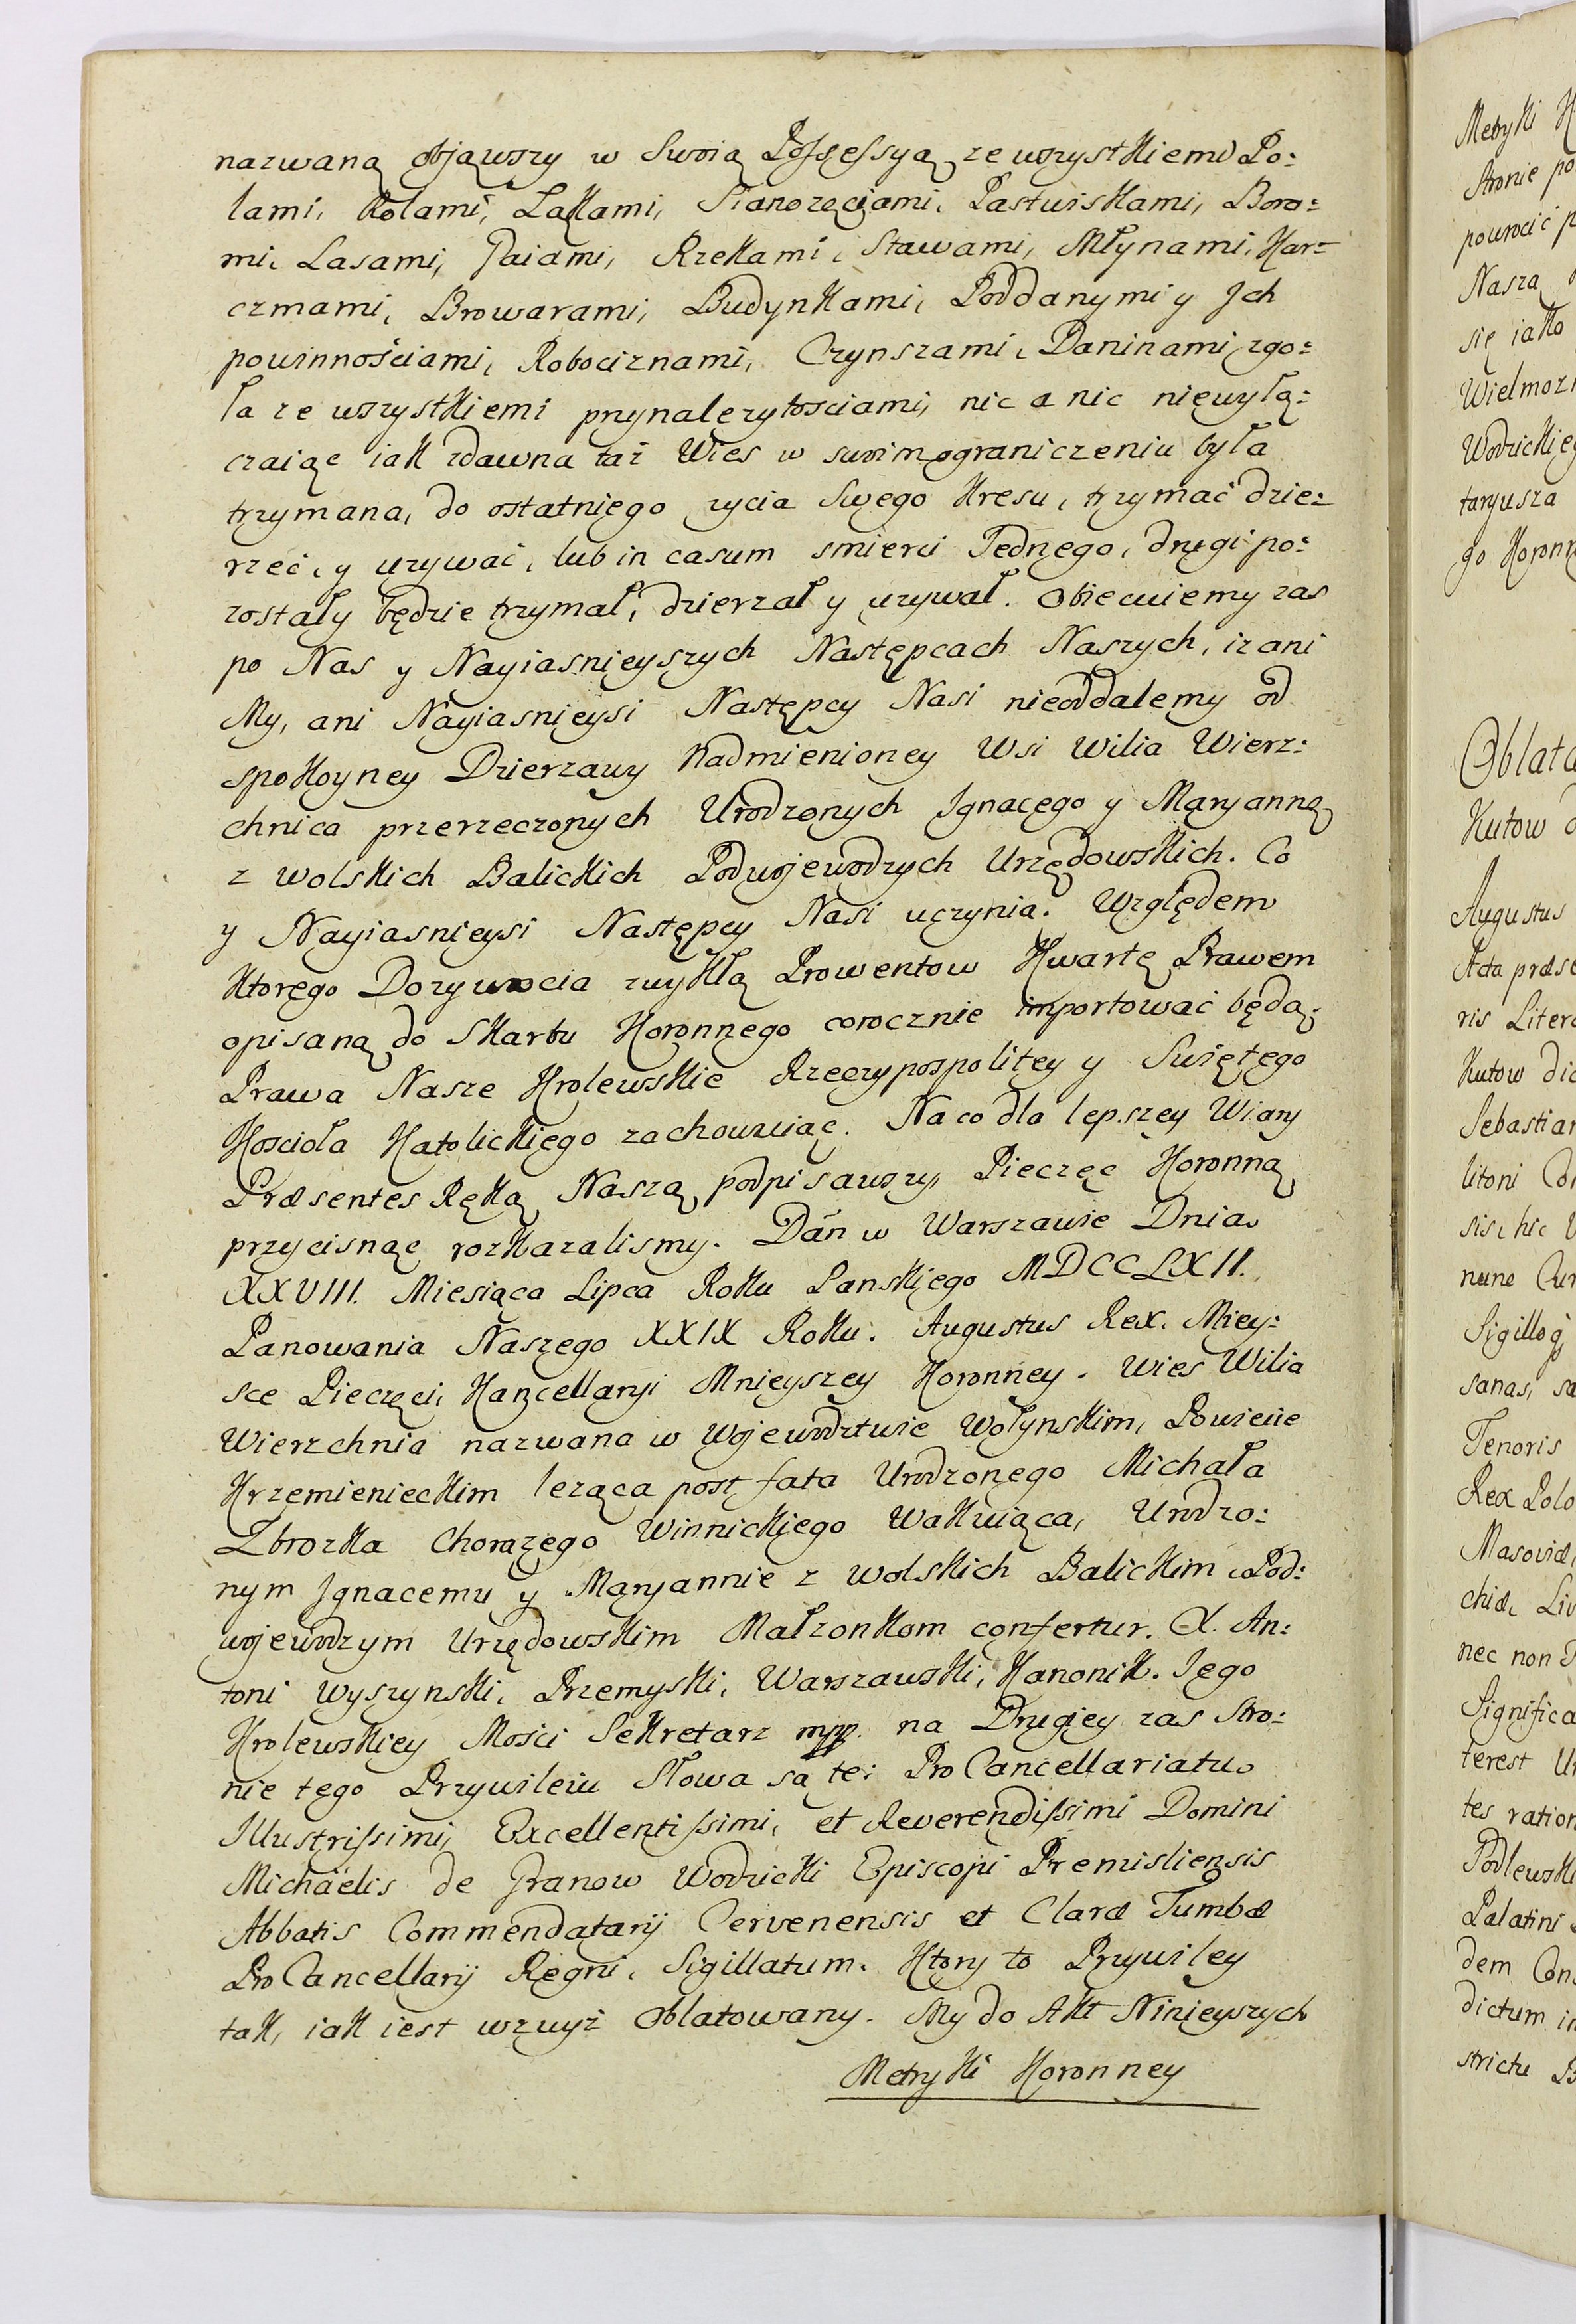 nazwaną objąwszy w Swoią Possessyą ze wszystkiemi Po:
lami, Rolami, Łąkami, Sianozęciami, Pastwiskami, Boro:
mi, Lasami, Gaiami, Rzekami, Stawami, Młynami, Kar=
czmami, Browarami, Budynkami, Poddanymi y Ich
powinnościami, Robociznami, Czynszami, Daninami, zgo:
ła ze wszystkiemi przynalezytosciami, nic a nic niewyłą:
czaiąc iak zdawna taż Wies w swoim ograniczeniu była
trzymana, do ostatniego zycia Swego Kresu, trzymać dzie:
rzeć, y uzywać, lub in casum smierci Jednego, drugi po:
zostały będzie trzymał, dzierzał y uzywał. Obiecuiemy zas
po Nas y Nayiasnieyszych Następcach Naszych, iz ani
My, ani Nayiasnieysi Następcy Nasi nieoddalemy od
spokoyney Dzierzawy Nadmienioney Wsi Wilia Wierz:
chnica przerzeczonych Urodzonych Ignacego y Maryanną
z Wolskich Balickich Podwojewodzych Urzędowskich. Co
y Nayiasnieysi Następcy Nasi uczynia. Względem
Ktorego Dozywocia zwykłą Prowentow Kwartę Prawem
opisaną do Skarbu Koronnego corocznie importować będą.
Prawa Nasze Krolewskie Rzeczypospolitey y Swiętego
Kosciola Katolickiego zachowuiąc. Na co dla lepszey Wiary
Præsentes Ręką Naszą podpisawszy, Pieczęc Koronną
przycisnąc rozkazalismy. Dań w Warszawie Dnia
XXVIII. Miesiąca Lipca Roku Panskiego MDCCLXII.
Panowania Naszego XXIX Roku. Augustus Rex. Miey:
sce Pieczęci, Kancellaryi Mnieyszey Koronney. Wies Wilia
Wierzchnia nazwana w Wojewodztwie Wołynskim, Powiecie
Krzemienieckim leząca post fata Urodzonego Michała
Zbrozka Chorązego Winnickiego Wakuiąca, Urodzo:
nym Ignacemu y Maryannie z Wolskich Balickim, Pod:
wojewodzym Urzędowskim Małzonkom confertur. X. An:
toni Wyszynski, Przemyski, Warszawski, Kanonik. Jego
Krolewskiey Mości Sekretarz mpp. na Drugiey zas Stro:
nie tego Przywileiu Słowa są te: Pro Cancellariatu
Illustrissimi, Excellentissimi, et Reverendissimi Domini
Michaëlis de Granow Wodzicki Episcopi Premisliensis
Abbatis Commendatarij Cervenensis et Claræ Tumbæ
Pro Cancellarij Regni, Sigillatum. Ktory to Przywiley
tak, iak iest wzwyż Oblatowany. My do Akt Ninieyszych
Metryki Koronney
Metryki
Stronie
powrocić
Naszą
się iako
Wodzickieg
taryusza
go Koronn
Oblata
Kutow
Augustus
Acta præs
ris Litera
Kutow
Sebastian
litoni
sis, hic
nunc
Sigilloq
sanas,
Tenoris
Rex Polo
Masoviæ,
chiæ,
nec non
Significa
terest
tes ration
Podlewski
Palatini
dem
dictum
strictu